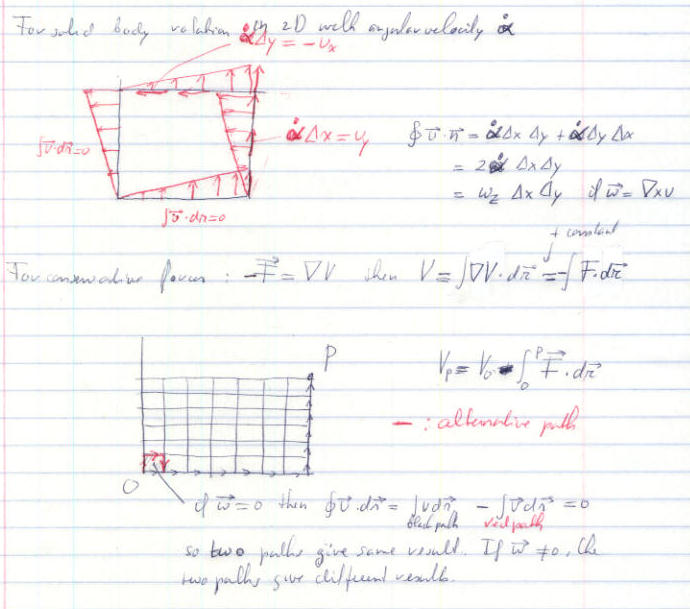 For solid body rotation in 2D with angular velocity α̇
α̇Δy = -υₓ
α̇Δx = υ_y
∫υ⃗·dr⃗=0
∮ υ⃗·r⃗ = α̇Δx Δy + α̇Δy Δx
= 2α̇ ΔxΔy
= ω_z Δx Δy if ω⃗ = ∇×υ
∫υ⃗·dr=0
+ constant
For conservative forces : -F⃗ = ∇V then V = ∫∇V·dr⃗ = -∫F·dr⃗
P
V_P = V_0 - ∫₀^P F⃗·dr⃗
— : alternative path
O
if ω⃗=0 then ∮υ⃗·dr⃗ = ∫υdr⃗ - ∫υ⃗dr⃗ = 0
black path red path
so two paths give same result. If ω⃗ ≠0, the
two paths give different results.